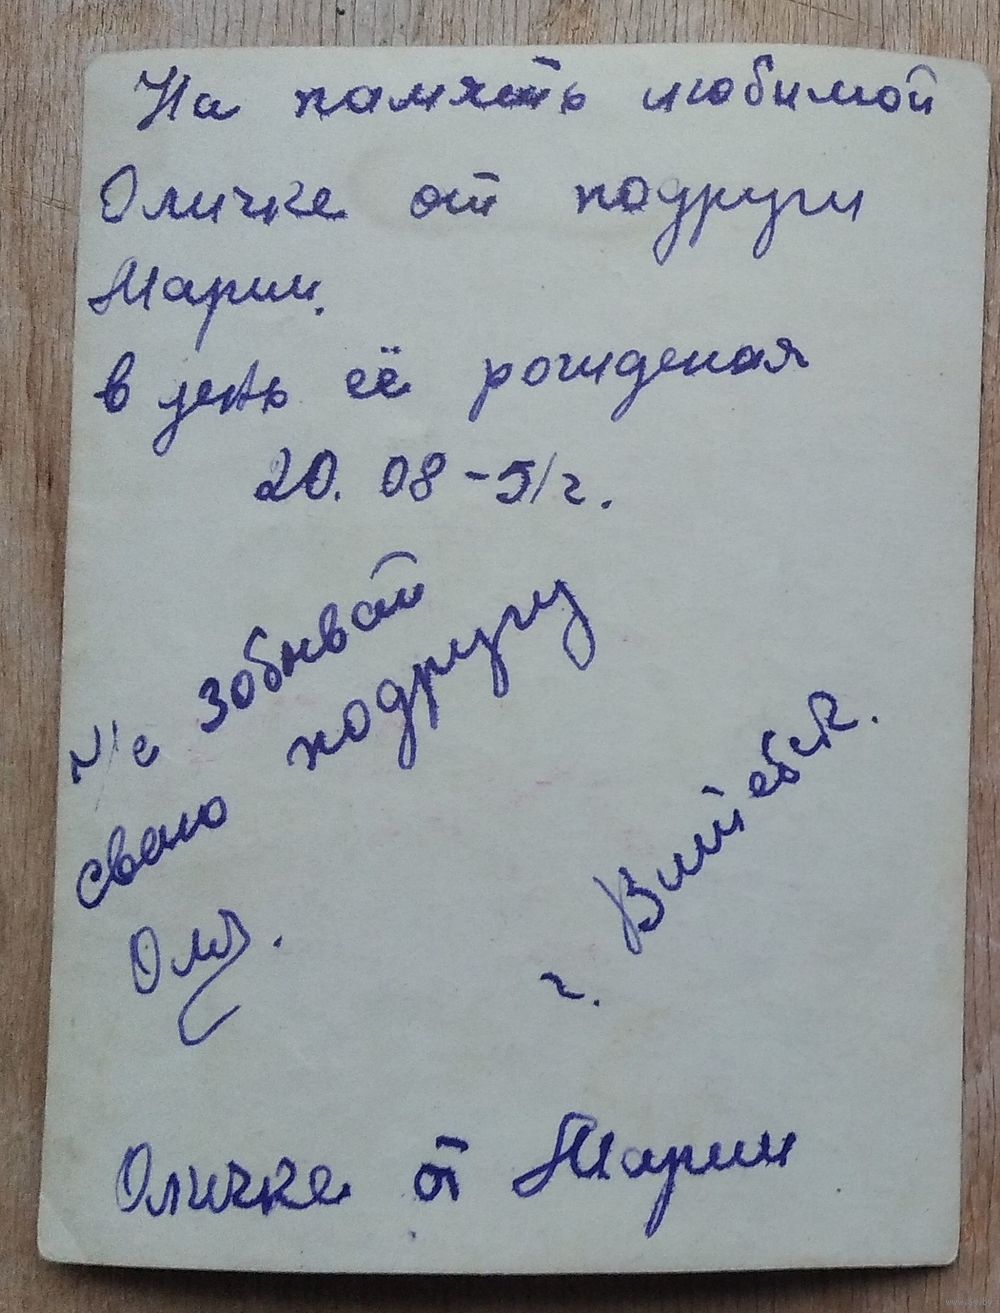 На память любимой
Оличке от подруги
Марии.
в день её рождения
20. 08 - 51 г.
Не зобывай
свою подругу
Оля.
г. Витебск.
Оличке от Марии